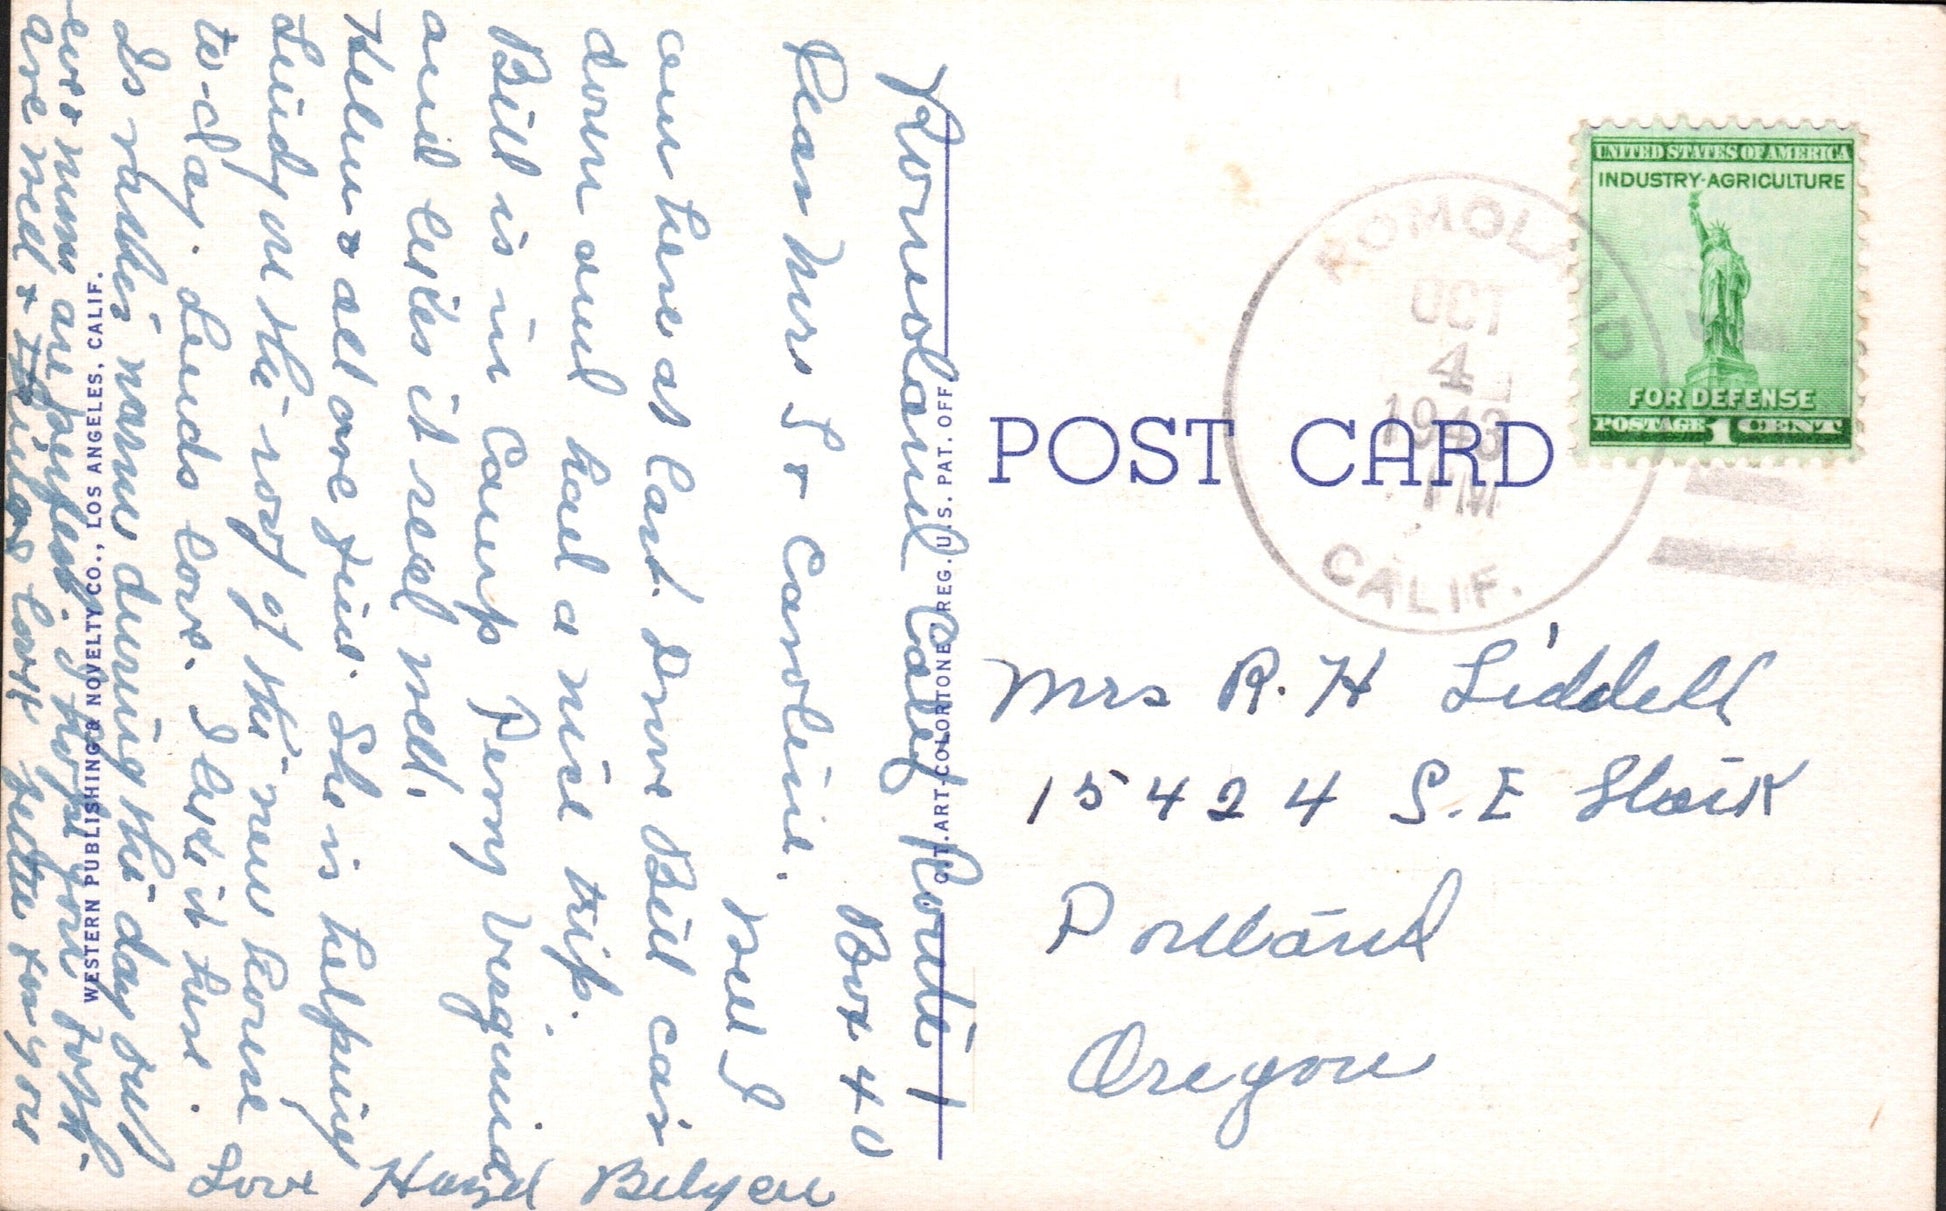 Romoland Calif Route 1
Box 40
Dear Mrs L & Caroline.
Well I
am here at last. Drove Bill car
down and had a nice trip.
Bill is in Camp Perry Verginia
and likes it real well.
Helen & all are fine. She is helping
Lundy on the roof of the new house
to-day. Lunds love. I like it here.
Is rather warm during the day but
evenings are perfect. I hope you folks
are well & things look better for you
Love Hazel Belyeu
POST CARD
C.T. ART-COLORTONE REG. U.S. PAT. OFF.
WESTERN PUBLISHING & NOVELTY CO., LOS ANGELES, CALIF.
ROMOLAND
OCT
4
1943
PM
CALIF.
UNITED STATES OF AMERICA
INDUSTRY-AGRICULTURE
FOR DEFENSE
POSTAGE 1 CENT
Mrs R. H Liddell
15424 S.E Stark
Portland
Oregon